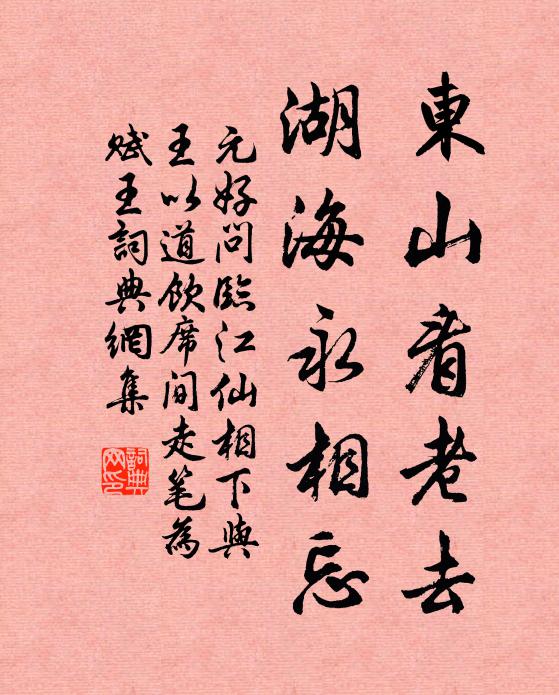 東山看老去
湖海永相忘
元好問臨江仙相下與
王以道飲席間走笔為
赋王詞典網集
詞典
网印